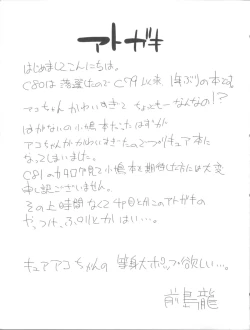 アトガキ
はじめましてこんにちは。
C80は落選したのでC79以来1年ぶりの本です
アコちゃんかわいすぎてちょっともーなんなの!?
はがないの小鳩本だったはずが
アコちゃんがかわいすぎたのでつプリキュア本に
なってしまいました。
C81のカタログ見て小鳩本を期待してた方には大変
申し訳ございません。
その上時間なくて4P目とかこのアトガキの
やっつけぶりとかはい…。
キュアアコちゃんの等身大ポップ欲しい…。
前島龍